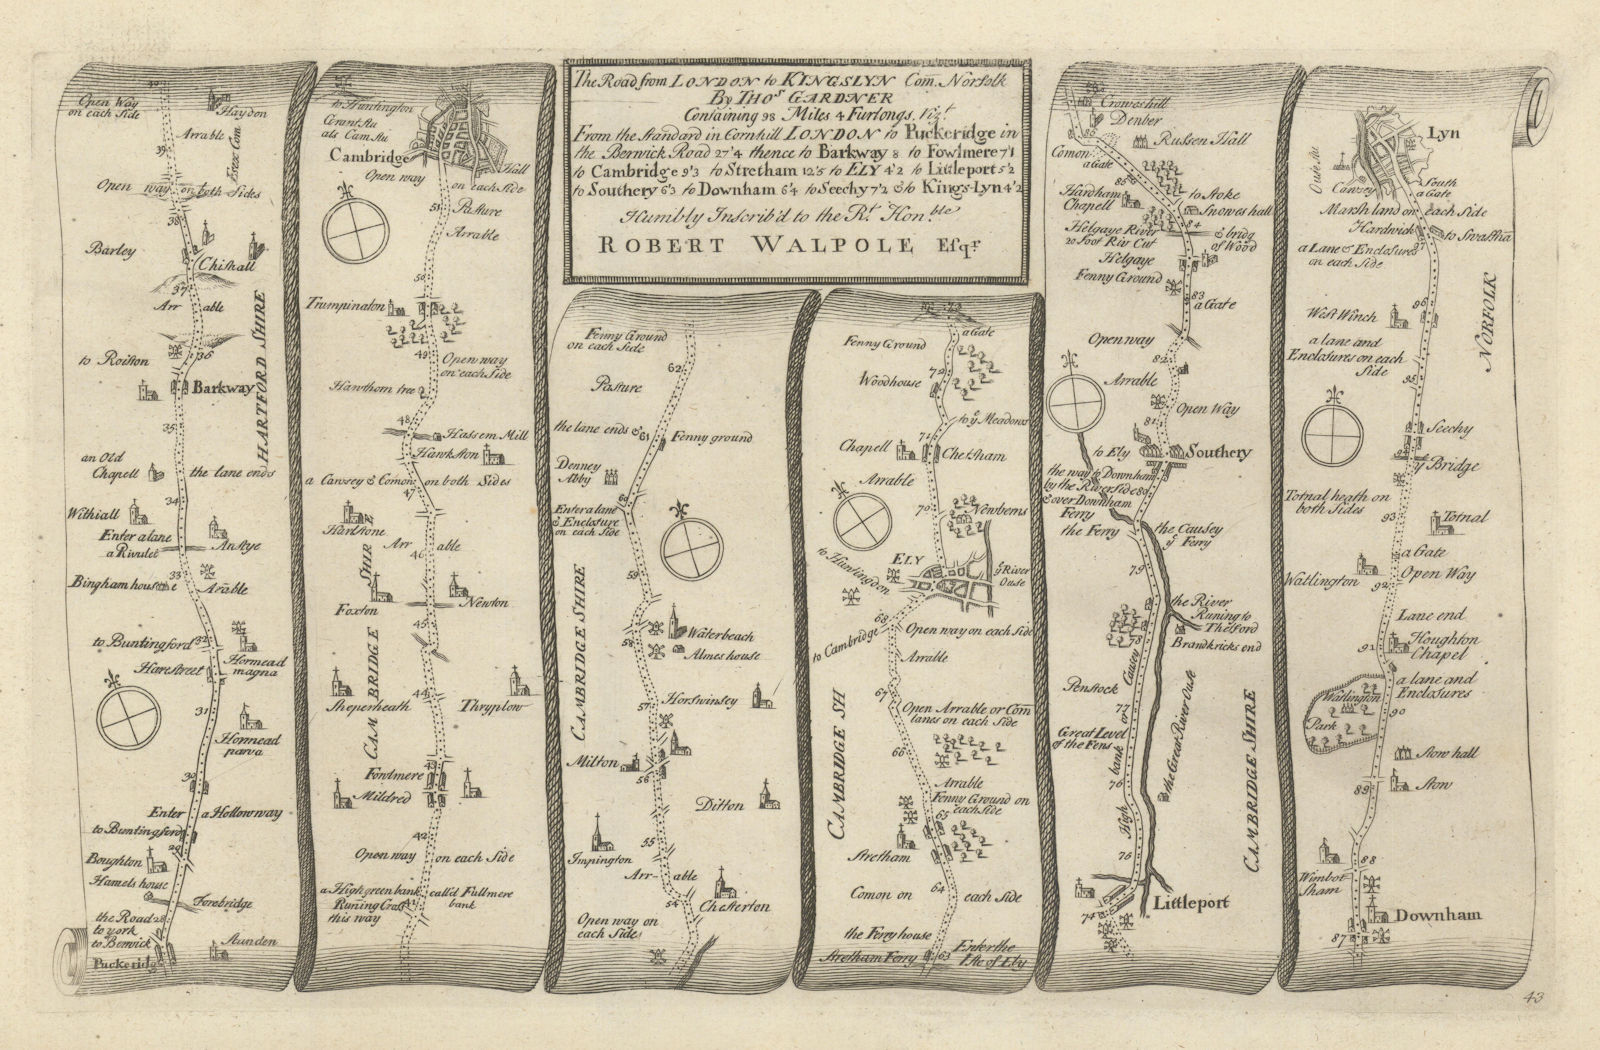 The Road from LONDON to KINGSLYN Com. Norfolk
By THOs. GARDNER
Containing 98 Miles 4 Furlongs, Vizt.
From the Standard in Cornhill LONDON to Puckeridge in
the Berwick Road 27'4 thence to Barkway 8 to Fowlmere 7'1
to Cambridge 9'3 to Stretham 12'5 to ELY 4'2 to Littleport 5'2
to Southery 6'3 to Downham 6'4 to Seechy 7'2 & to Kings-Lyn 4'2
Humbly Inscrib'd to the Rt. Honble
ROBERT WALPOLE Esqr.
40
Open Way
on each Side
Haydon
Arrable
Essex Com.
39
Open way on both Sides
38
Barley
Chishall
37
Arr able
HARTFORD SHIRE
to Roiston
36
Barkway
35
an Old
Chapell
the lane ends
34
Withiall
Enter a lane
a Rivulet
Anstye
33
Bingham house
Arable
to Buntingford
32
Hormead
magna
Harestreet
31
Hormead
parva
30
Enter a Hollow way
to Buntingford
29
Boughton
Hamels house
Forebridge
the Road
28
to york
to Berwick
Stunden
Puckeridg
to Huntington
Grant flu
als Cam flu
Cambridge
Hall
Open way on each Side
51
Pasture
Arrable
50
Trumpinaton
49
Open way
on each Side
Hawthorn tree
48
Hassem Mill
Hawkston
a Cawsey & Comon on both Sides
47
Harlstone
Arr able
46
CAMBRIDGE SHIR
Foxton
Newton
45
Sheperheath
44
Thryplow
43
Fowlmere
Mildred
42
Open way on each Side
a High green bank call'd Fullmere
Runing Cross bank
this way
41
Fenny Ground
on each Side
62
Pasture
the lane ends &
61
Fenny ground
Denney
Abby
Enter a lane
& Enclosure
on each Side
59
CAMBRIDGE SHIRE
58
Waterbeach
Almes house
57
Horswinsey
Milton
56
Ditton
55
Impington
Arr able
54
Chesterton
Open way on
each Side
73
a Gate
Fenny Ground
72
Woodhouse
to ye Meadows
71
Chapell
Chetsham
Arrable
70
Newberns
ELY
ye River
Ouse
to Huntingdon
68
to Cambridge
Open way on each Side
Arrable
67
Open Arrable or Corn
lanes on each Side
66
CAMBRIDGE SH
Arrable
Fenny Ground on
each Side
65
Stretham
64
Comon on each Side
the Ferry house
Stretham Ferry
63
Enter the
Isle of Ely
86
Croweshill
Denber
Russen Hall
Comon
a Gate
85
Hardham
Chapell
to Stoke
Snowes hall
Helgaye River
20 foot Riv Cut
84
a bridg
of Wood
Helgaye
Fenny Ground
83
a Gate
Open way
82
Arrable
Open Way
81
to Ely
Southery
the way to Downham
by the River side
80
& over Downham
Ferry
the Ferry
the Causey
ye Ferry
79
the River
Runing to
Thetford
78
Brandkricks end
Penstock
77
Great Level
of the Fens
High bank or Causey
the Great River Ouse
76
CAMBRIDGE SHIRE
75
Littleport
74
Lyn
Ouse flu
Cawsey
South
a Gate
Marsh land on each Side
Hardwick
to Swaffha
97
a Lane & Enclosures
on each Side
West Winch
96
a lane and
Enclosures on each
Side
NORFOLK
95
Seechy
ye Bridge
Totnal heath on
both Sides
93
Totnal
a Gate
Open Way
Watlington
92
Lane end
Houghton
Chapel
91
a lane and
Enclosures
Watlington
Park
90
Stow hall
89
Stow
88
Wimbot
Sham
Downham
87
43